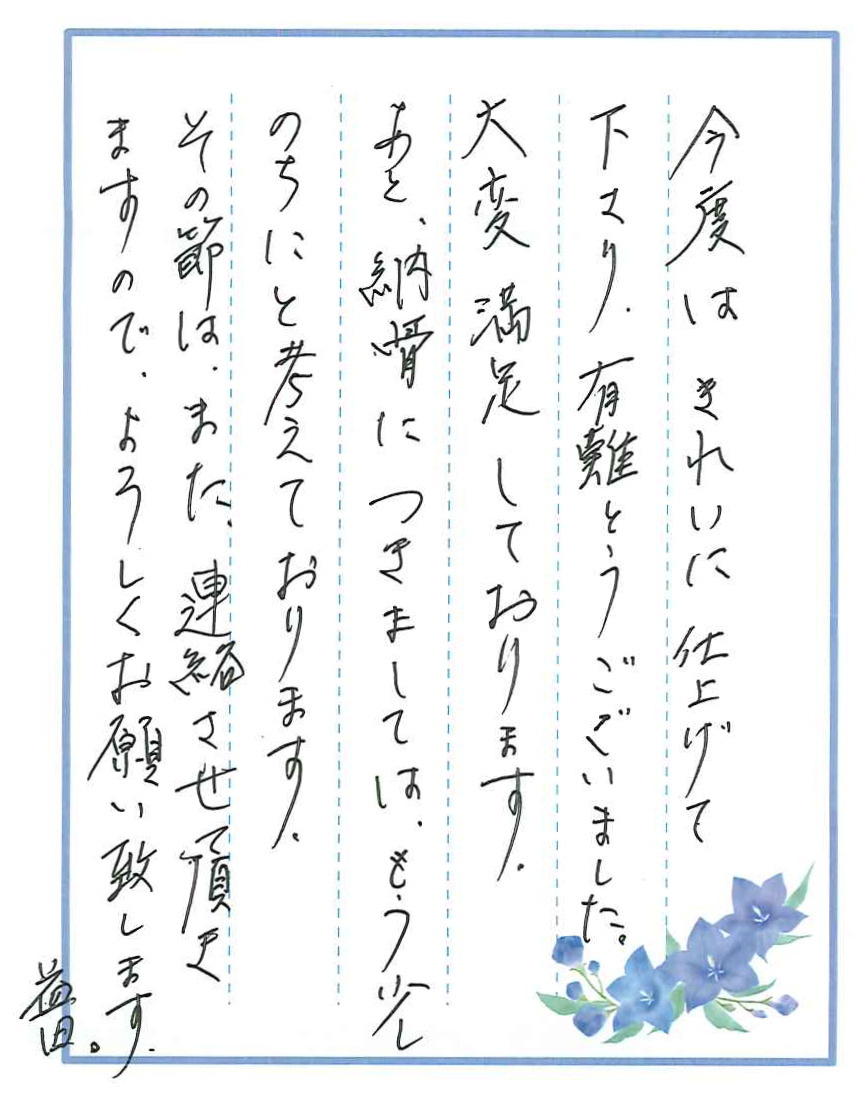 今度は きれいに 仕上げて
下さり、有難とうございました。
大変 満足しております。
あと、納骨につきましては、もう少し
のちにと考えております。
その節は、また、連絡させて頂き
ますので、よろしくお願い致します。
益田。